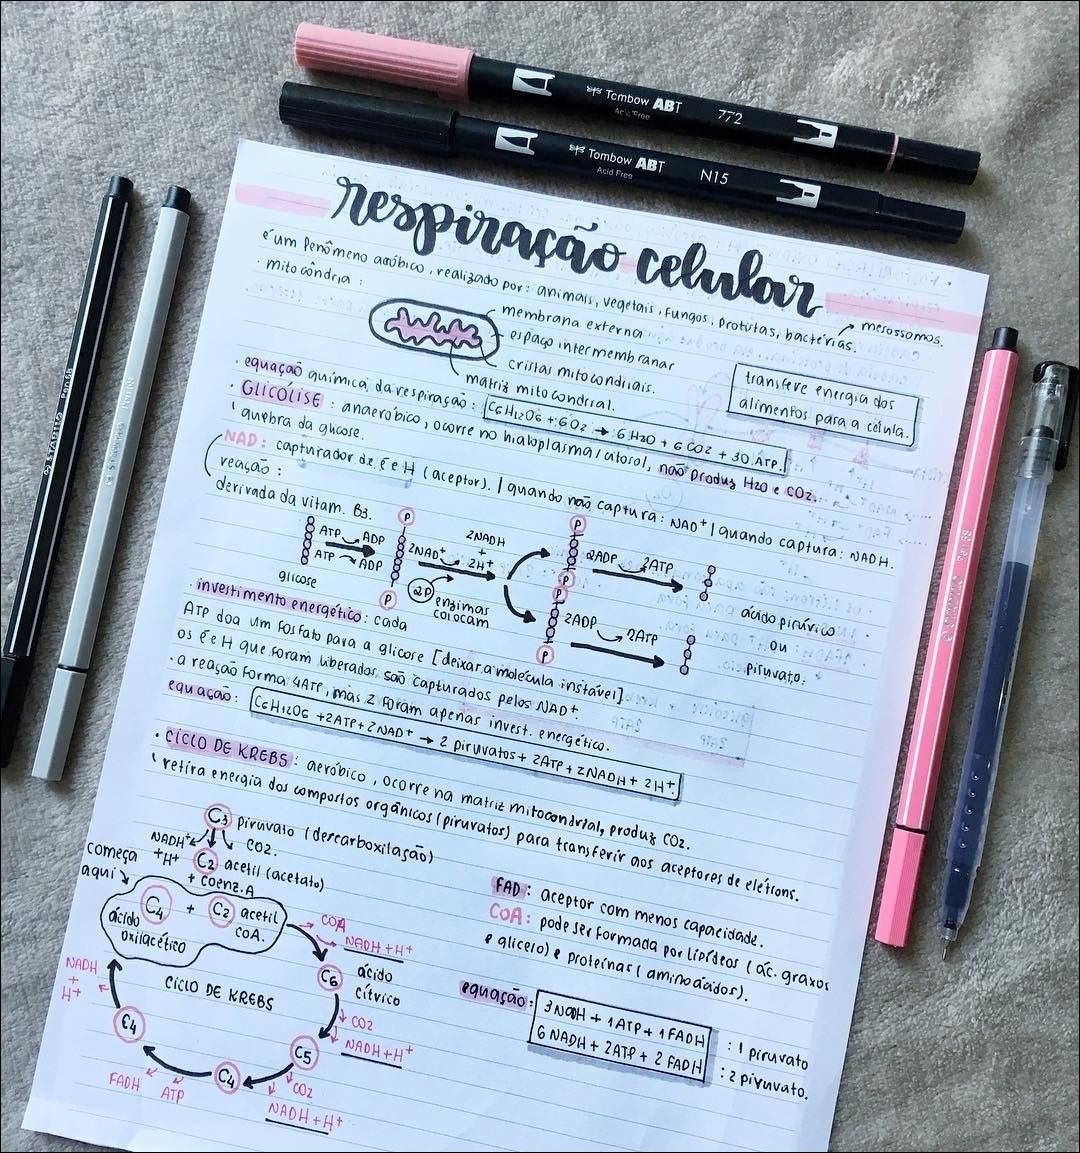 Tombow ABT
Acid Free
772
Tombow ABT
Acid Free
N15
STABILO
respiração celular
é um fenômeno aeróbico, realizado por: animais, vegetais, fungos, protistas, bactérias.
mesossomos.
· mitocôndria:
membrana externa
espaço intermembranar
cristas mitocondriais.
matriz mitocondrial.
transfere energia dos
alimentos para a célula.
· equação química da respiração: C6H12O6 + 6O2 → 6H2O + 6CO2 + 30 ATP.
· GLICÓLISE: anaeróbico, ocorre no hialoplasma/citosol, não produz H2O e CO2.
quebra da glicose.
NAD: capturador de é e H (aceptor). | quando não captura: NAD⁺ | quando captura: NADH.
reação:
derivada da vitam. B3.
glicose
ATP ADP
ATP ADP
P
P
2NAD⁺
2NADH
+
2H⁺
2P enzimas
colocam
P
P
P
P
2ADP 2ATP
2ADP 2ATP
ácido pirúvico
ou
piruvato.
· investimento energético: cada
ATP doa um fosfato para a glicose [deixar a molécula instável]
os é e H que foram liberados são capturados pelos NAD⁺.
· a reação forma 4ATP, mas 2 foram apenas invest. energético.
equação: C6H12O6 + 2ATP + 2NAD⁺ → 2 piruvatos + 2ATP + 2NADH + 2H⁺.
· CICLO DE KREBS: aeróbico, ocorre na matriz mitocondrial, produz CO2.
retira energia dos compostos orgânicos (piruvatos) para transferir aos aceptores de elétrons.
C3 piruvato (descarboxilação)
NADH⁺
+H⁺
CO2.
C2 acetil (acetato)
+ coenz. A
começa
aqui
C4 + C2 acetil
CoA.
ácido
oxilacético
COA
NADH + H⁺
C6 ácido
cítrico
CICLO DE KREBS
CO2
NADH + H⁺
C5
CO2
NADH + H⁺
C4
FADH
ATP
C4
NADH
+
H⁺
FAD: aceptor com menos capacidade.
COA: pode ser formada por lipídeos (ác. graxos
e glicero) e proteínas (aminoácidos).
equação: 3 NADH + 1 ATP + 1 FADH : 1 piruvato
6 NADH + 2ATP + 2 FADH : 2 piruvato.